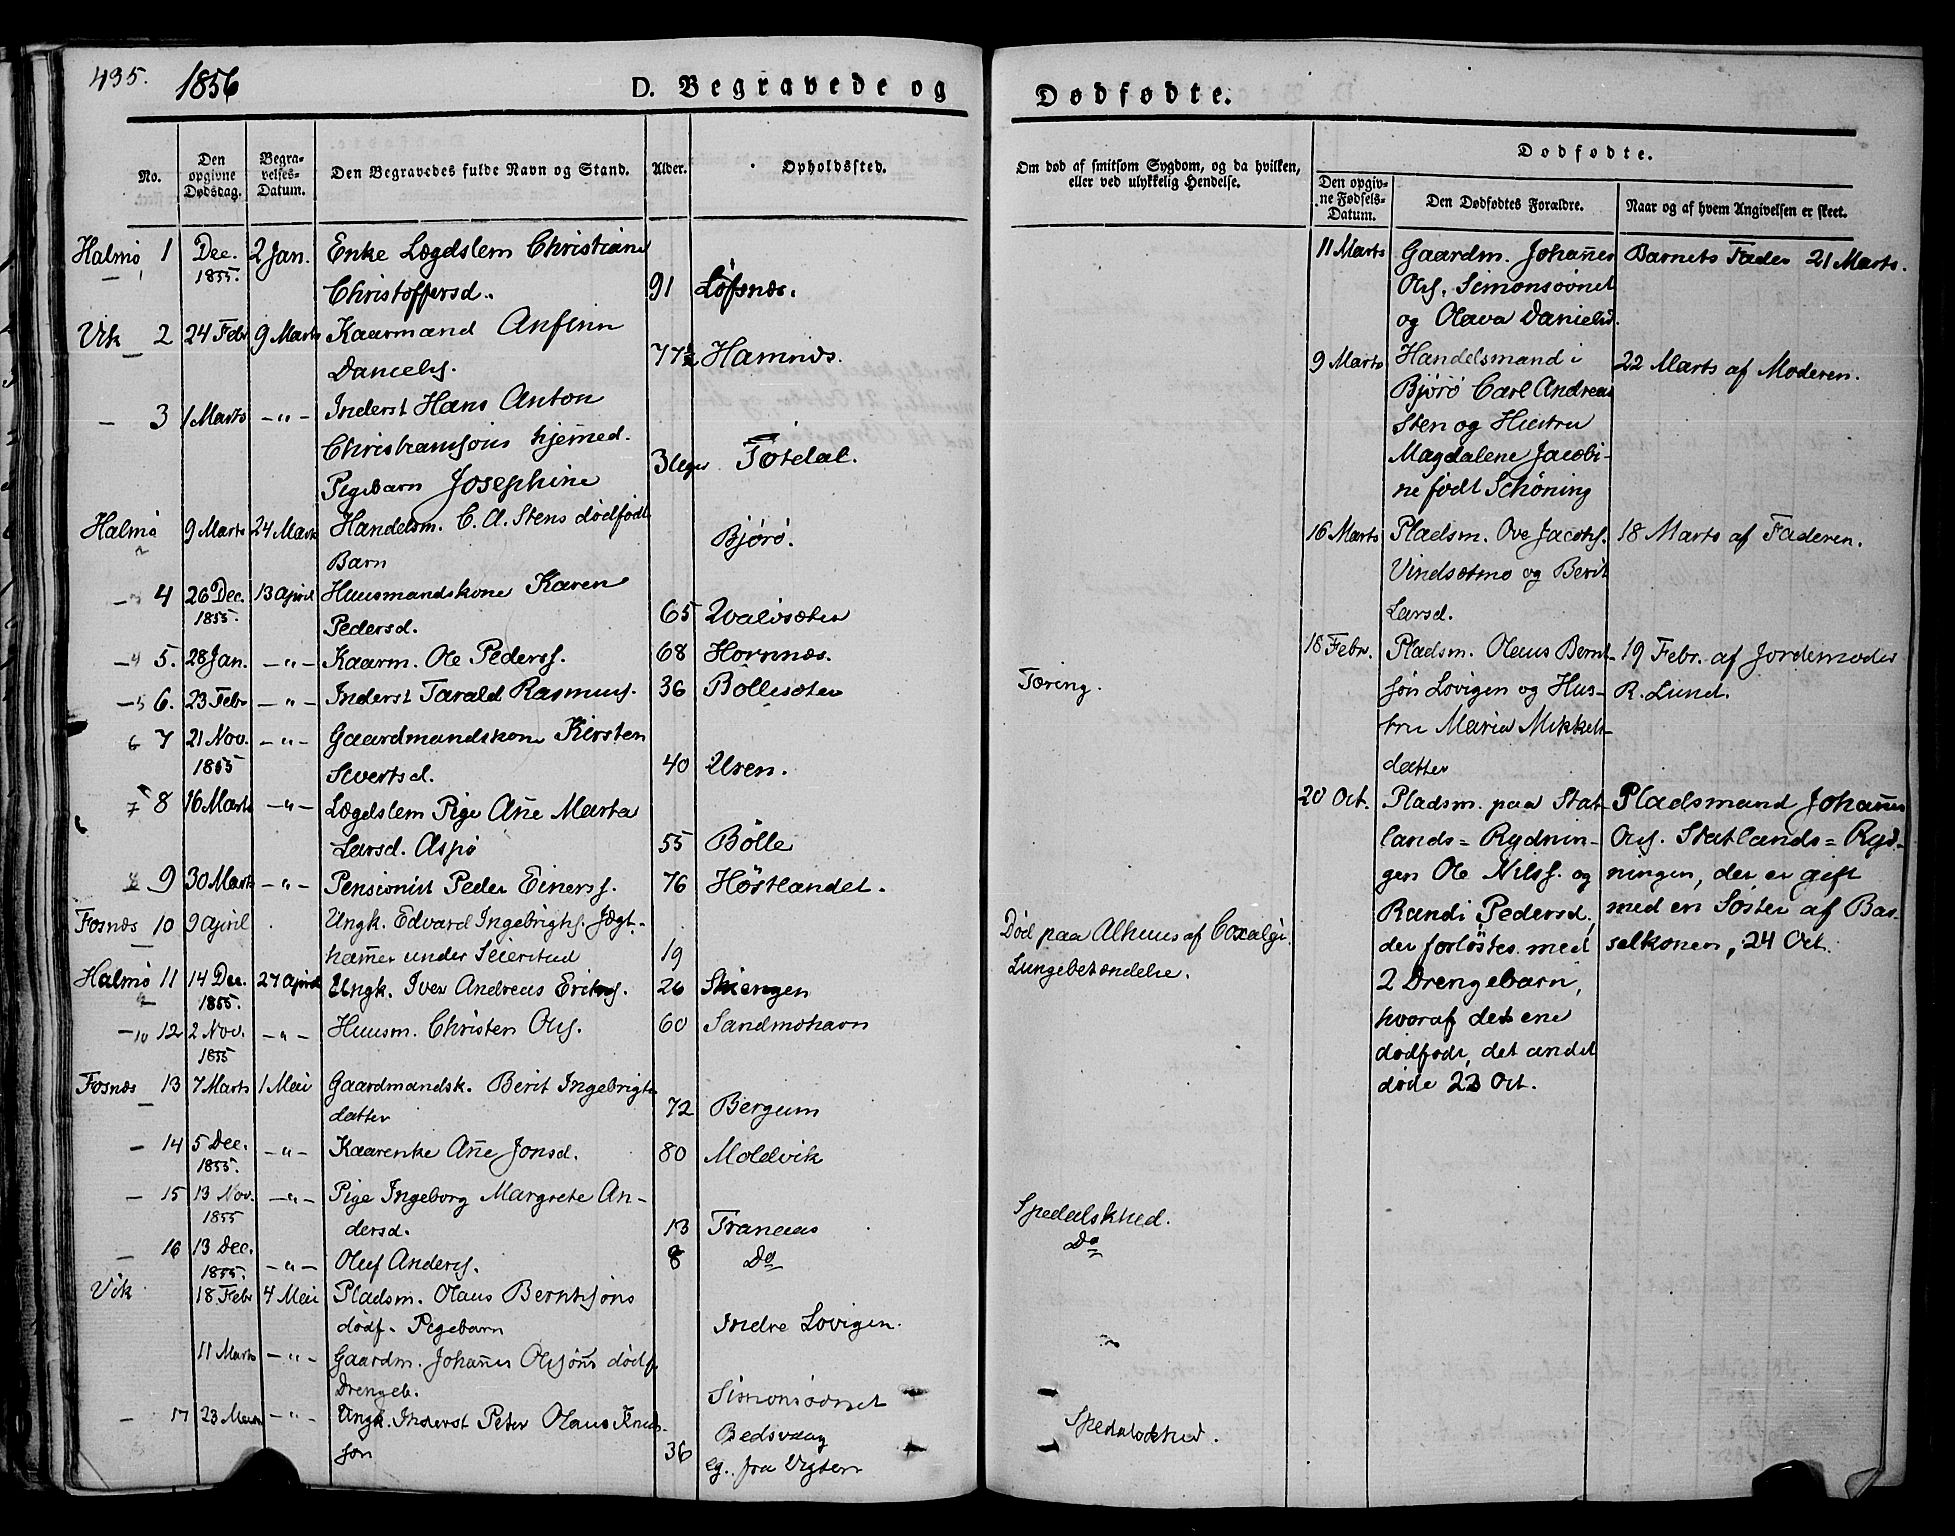 435. 1856 D. Begravede og
No.
Den opgivne Dødsdag.
Begravelses-Datum.
Den Begravedes fulde Navn og Stand.
Alder.
Opholdssted.
Halmø 1 Dec. 2 Jan. Enke Lægdslem Christiane
1855. Christoffersd. 91 Løfsnæs.
Vik 2 24 Febr 9 Marts Kaarmand Anfinn
Daniels. 77½ Hamnæs.
3 1 Marts -"- Inderst Hans Anton
Christiansøns hjemmed.
Pigebarn Josephine 3 Uger Fotdal.
Halmø 9 Marts 24 Marts Handelsm. C. A. Stens dødfødt
2 Barn Bjørø.
3 4 26 Dec. 13 April Huusmandskone Karen
1855. Pedersd. 65 Valøsæter
4 5. 28 Jan. -"- Kaarm. Ole Peders. 68 Hornnæs.
5 6. 23 Febr -"- Inderst Tarald Rasmus. 36 Bøllesæter
6 7 21 Nov. -"- Gaardmandskone Kirsten
1855 Sivertsd. 40 Uren.
7 8 16 Marts -"- Lægdslem Pige Ane Marta
Larsd. Aspø 55 Bølle
8 9 30 Marts -"- Pensionist Peder Einers. 76 Høstlandet.
Fosnæs 10 9 April Ungk. Edvard Ingebrigts. Jægt-
hamer under Seierstad 19
Halmø 11 14 Dec. 27 April Ungk. Iver Andreas Eriks. 26 Skiengen
9 1855.
10 12 2 Nov. -"- Huusm. Christen Ols. 60 Sandmohavn
1855
Fosnæs 13 7 Marts 1 Mai Gaardmandsk. Berit Ingebrigts
datter 72 Bergum
14 5 Dec. -"- Kaarenke Ane Jonsd. 80 Moldvik
1855.
15 13 Nov. -"- Pige Ingeborg Margrete An-
1855 dersd. 13 Franeaas
16 13 Dec. -"- Oluf Anders. 8 Do
1855.
Vik 18 Febr 4 Mai Pladsm. Olaus Berntsøns
dødf. Pigebarn Indre Lovigen.
11 Marts -"- Gaardm. Johanes Olsøns dødf.
Drengeb. Simonsøvnet
17 23 Marts -"- Ungk. Inderst Peter Olaus Knud-
søn 36 Bedsvaag
eg. fra Vigten
Dødfødte.
Om død af smitsom Sygdom, og da hvilken, eller ved ulykkelig Hendelse.
Dødfødte.
Den opgivne Fødsels-Datum.
Den Dødfødtes Forældre.
Naar og af hvem Angivelsen er skeet.
Tæring.
Død paa Alhuus af Coxalgi.
Lungebetændelse.
Spedalskhed.
Do
Spedalskhed.
11 Marts Gaardm. Johanes Barnets Fader 21 Marts.
Ols. Simonsøvnet
og Olava Danielsd.
9 Marts Handelsmand i 22 Marts af Moderen.
Bjørø Carl Andreas
Sten og Hustru
Magdalene Jacobi-
ne født Schøning
16 Marts Pladsm. Ove Jacobs. 18 Marts af Faderen.
Vindsetmo og Berit
Larsd.
18 Febr. Pladsm. Olaus Bernt- 19 Febr. af Jordemoder
søn Lovigen og Hus- R. Lund.
tru Maria Mikkels-
datter
20 Oct. Pladsm. paa Stat- Pladsmand Johanes
lands=Rydnin- Ols. Statlands=Ryd-
gen Ole Nilss. og ningen, der er gift
Randi Pedersd. med en Søster af Bar-
der forløstes med selkonen, 24 Oct.
2 Drengebørn,
hvoraf det ene
dødfødt, det andet
døde 22 Oct.